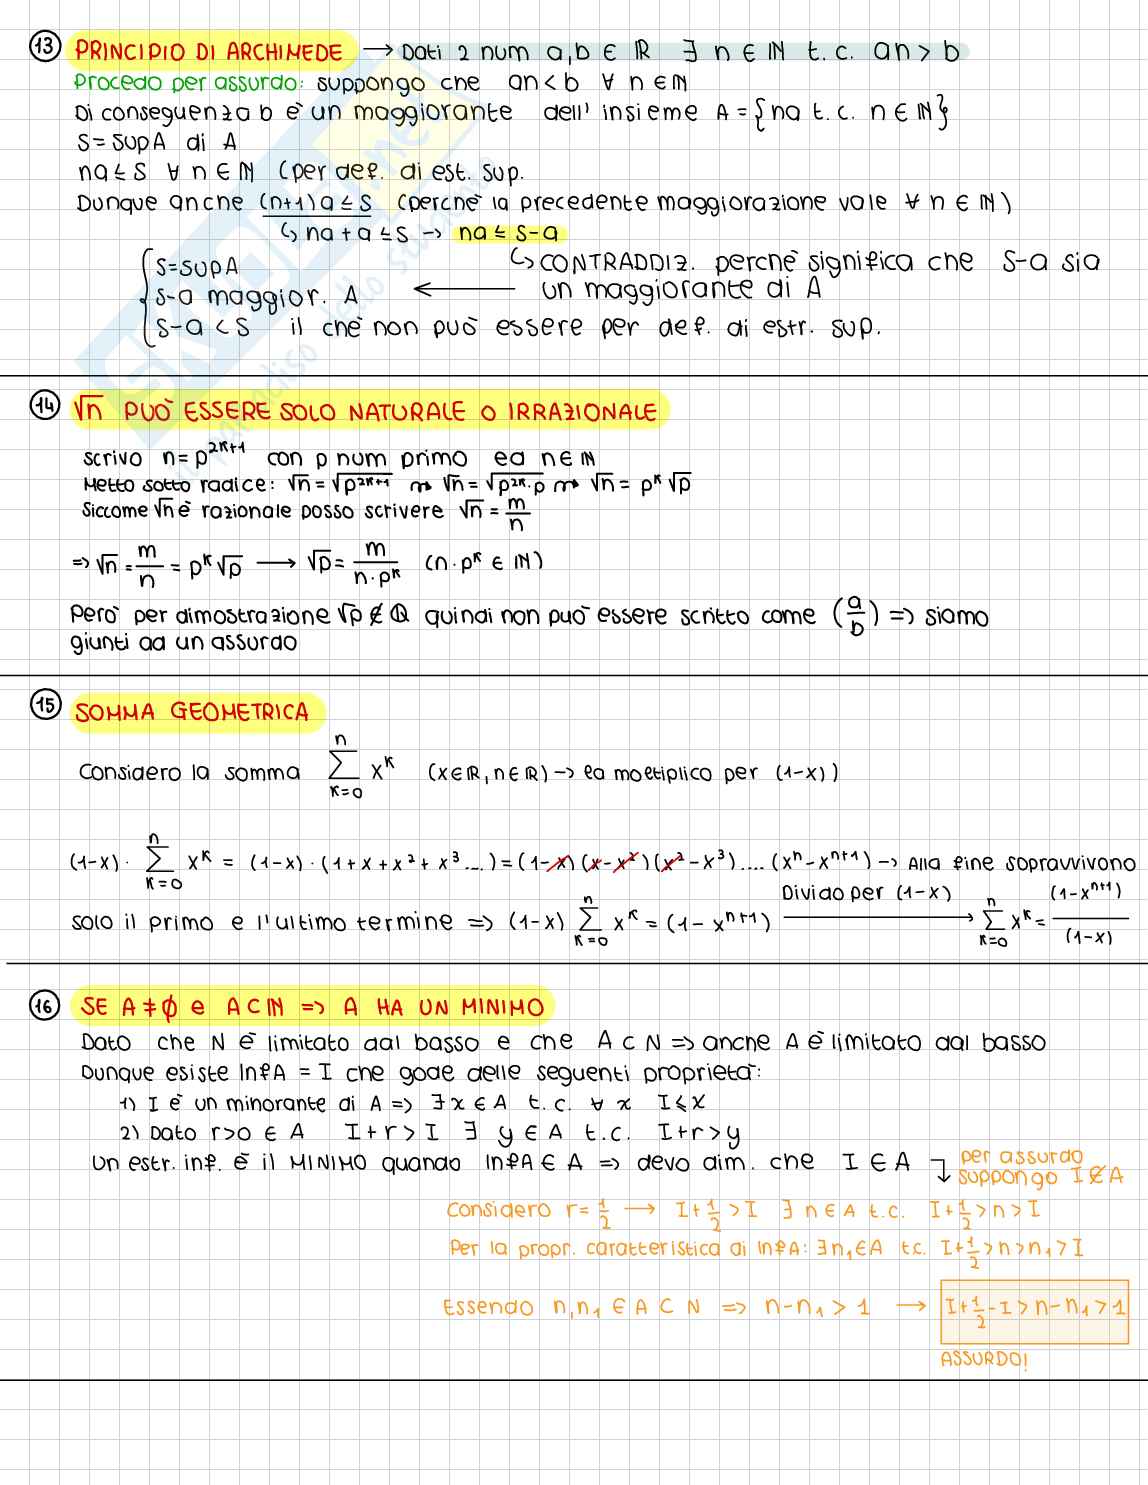 13 PRINCIPIO DI ARCHIMEDE → Dati 2 num a,b ∈ ℝ ∃ n ∈ ℕ t.c. an > b
Procedo per assurdo: suppongo che an < b ∀ n ∈ ℕ
Di conseguenza b è un maggiorante dell' insieme A = {na t.c. n ∈ ℕ}
S = sup A di A
na ≤ S ∀ n ∈ ℕ (per def. di est. sup.
Dunque anche (n+1)a ≤ S (perché la precedente maggiorazione vale ∀ n ∈ ℕ)
↳ na + a ≤ S → na ≤ S-a
↳ CONTRADDIZ. perché significa che S-a sia
un maggiorante di A
S = SUPA
S-a maggior. A ←
S-a < S il che non può essere per def. di estr. sup.
14 √n PUÒ ESSERE SOLO NATURALE O IRRAZIONALE
scrivo n = p^{2k+1} con p num primo ed n ∈ ℕ
Metto sotto radice: √n = √(p^{2k+1}) ⇝ √n = √(p^{2k}·p) ⇝ √n = p^k √p
Siccome √n è razionale posso scrivere √n = m/n
=> √n = m/n = p^k √p → √p = m/(n·p^k) (n·p^k ∈ ℕ)
Però per dimostrazione √p ∉ ℚ quindi non può essere scritto come (a/b) => siamo
giunti ad un assurdo
15 SOMMA GEOMETRICA
Considero la somma ∑_{k=0}^{n} x^k (x∈ℝ, n∈ℝ) → la moltiplico per (1-x))
(1-x) · ∑_{k=0}^{n} x^k = (1-x) · (1+x+x²+x³...) = (1-x)(x-x²)(x²-x³)....(x^n - x^{n+1}) → Alla fine sopravvivono
solo il primo e l'ultimo termine => (1-x) ∑_{k=0}^{n} x^k = (1-x^{n+1}) Divido per (1-x) → ∑_{k=0}^{n} x^k = (1-x^{n+1})/(1-x)
16 SE A ≠ ∅ e A ⊂ ℕ => A HA UN MINIMO
Dato che N è limitato dal basso e che A ⊂ N => anche A è limitato dal basso
Dunque esiste InfA = I che gode delle seguenti proprietà:
1) I è un minorante di A => ∃ x ∈ A t.c. ∀ x I ≤ x
2) Dato r>0 ∈ A I+r > I ∃ y ∈ A t.c. I+r > y
Un estr. inf. è il MINIMO quando InfA ∈ A => devo dim. che I ∈ A
per assurdo
suppongo I ∉ A
Considero r = 1/2 → I + 1/2 > I ∃ n ∈ A t.c. I + 1/2 > n > I
Per la propr. caratteristica di InfA: ∃ n₁ ∈ A t.c. I + 1/2 > n > n₁ > I
Essendo n, n₁ ∈ A ⊂ N => n - n₁ > 1 → I + 1/2 - I > n - n₁ > 1
ASSURDO!